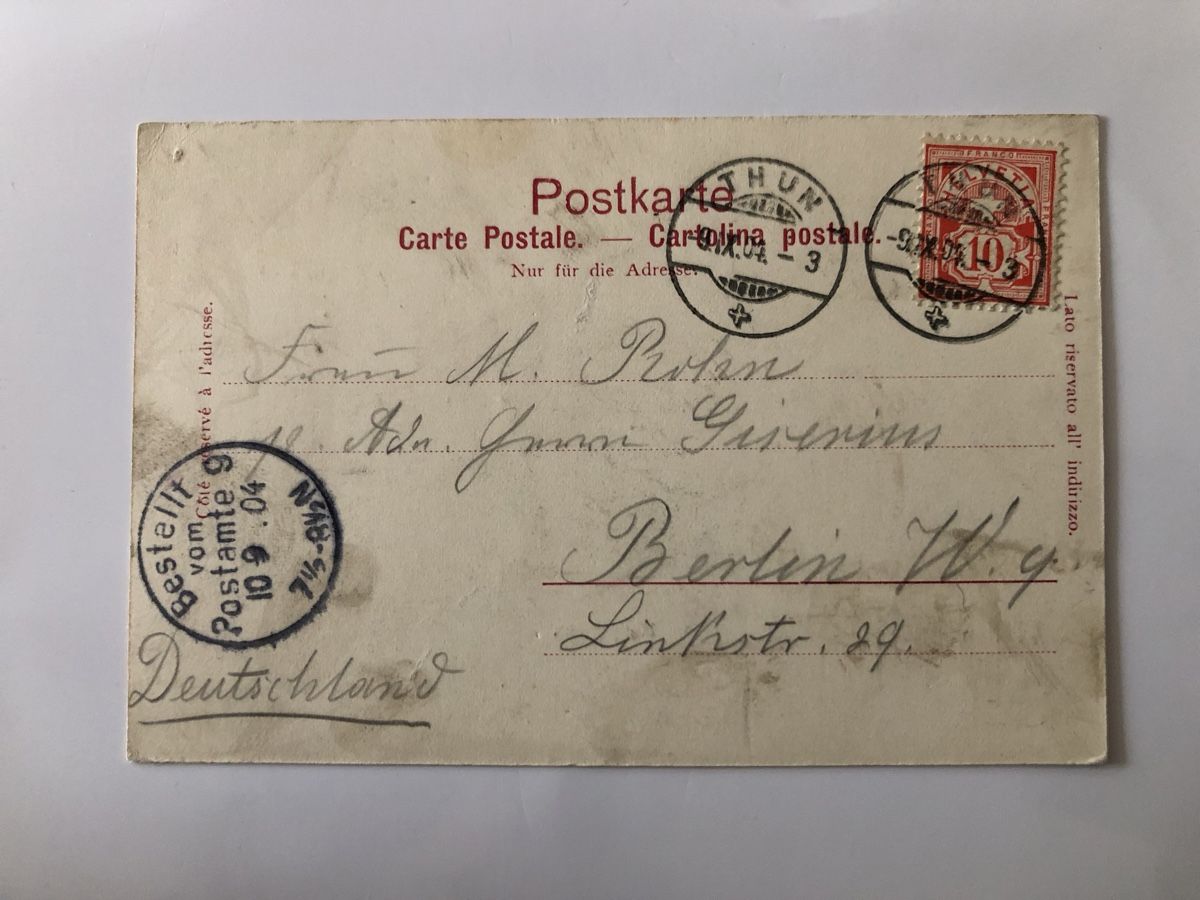 Postkarte
Carte Postale. — Cartolina postale.
Nur für die Adresse.
Côté réservé à l'adresse.
Lato riservato all' indirizzo.
FRANCO
HELVETIA
10
THUN
-9.IX.04.-3
THUN
-9.IX.04.-3
Frau M. Rohn
p. Adr. Herrn Giserius
Berlin W. 9
Linkstr. 29.
Deutschland
Bestellt
vom
Postamte 9
10 9 .04
7½-8½N